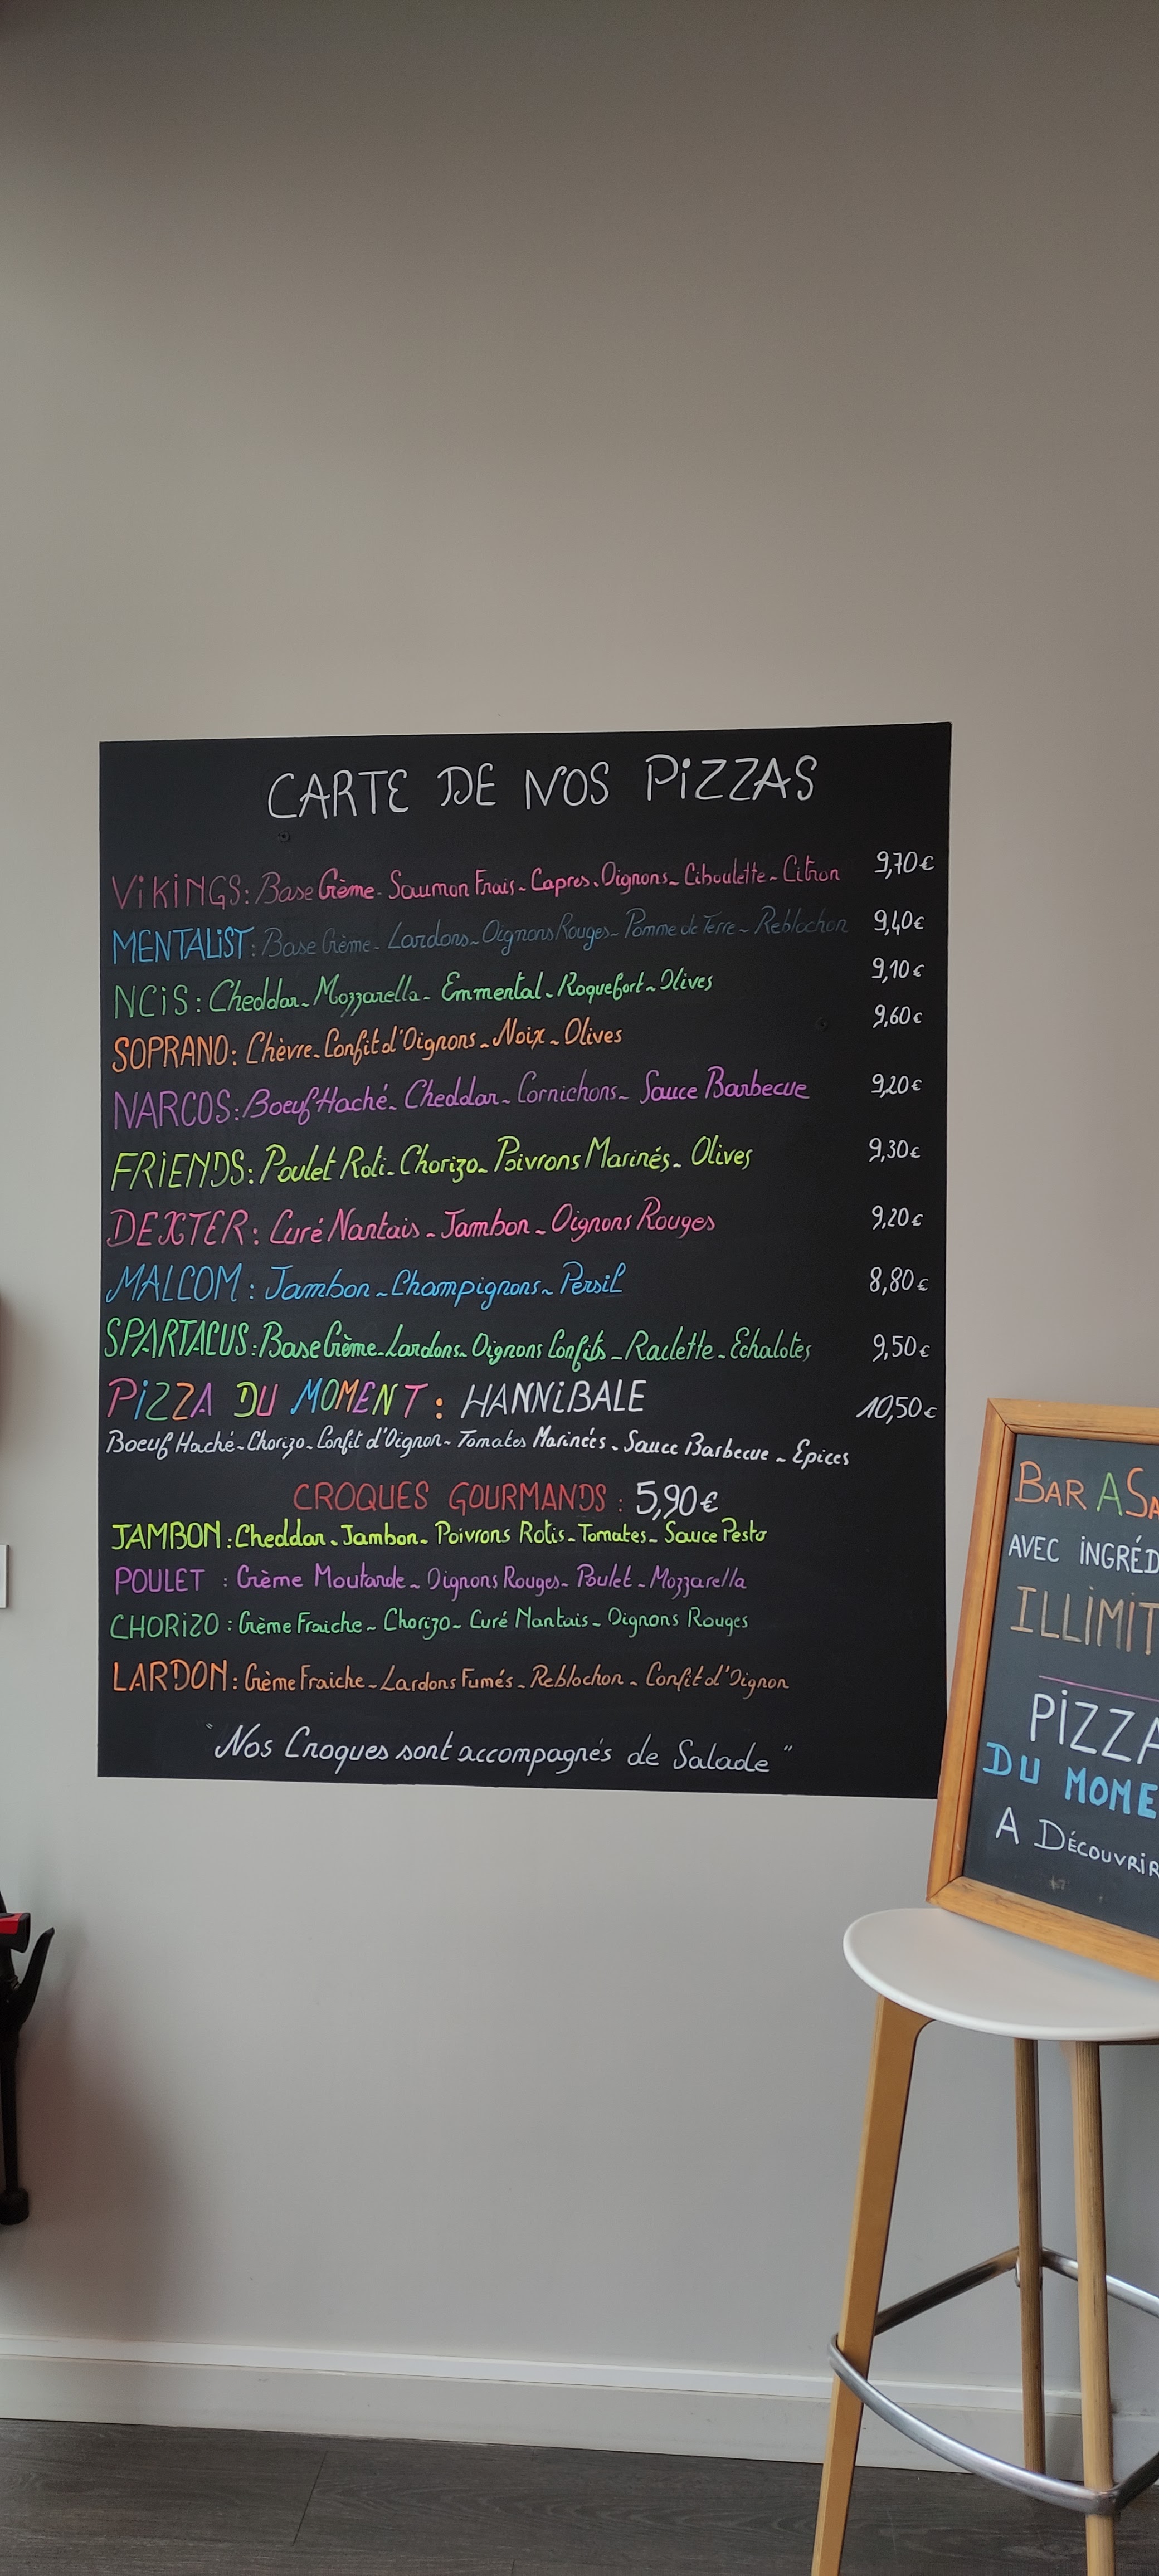 CARTE DE NOS PIZZAS
ViKiNGS: Base Crème - Saumon Frais - Capres - Oignons - Ciboulette - Citron 9,70€
MENTALiST: Base Crème - Lardons - Oignons Rouges - Pomme de Terre - Reblochon 9,40€
NCiS: Cheddar - Mozzarella - Emmental - Roquefort - Olives 9,10€
SOPRANO: Chèvre - Confit d'Oignons - Noix - Olives 9,60€
NARCOS: Boeuf Haché - Cheddar - Cornichons - Sauce Barbecue 9,20€
FRiENDS: Poulet Roti - Chorizo - Poivrons Marinés - Olives 9,30€
DEXTER: Curé Nantais - Jambon - Oignons Rouges 9,20€
MALCOM: Jambon - Champignons - Persil 8,80€
SPARTACUS: Base Crème - Lardons - Oignons Confits - Raclette - Echalotes 9,50€
PiZZA DU MOMENT: HANNiBALE 10,50€
Boeuf Haché - Chorizo - Confit d'Oignon - Tomates Marinées - Sauce Barbecue - Epices
CROQUES GOURMANDS: 5,90€
JAMBON: Cheddar - Jambon - Poivrons Rotis - Tomates - Sauce Pesto
POULET: Crème Moutarde - Oignons Rouges - Poulet - Mozzarella
CHORiZO: Crème Fraiche - Chorizo - Curé Nantais - Oignons Rouges
LARDON: Crème Fraiche - Lardons Fumés - Reblochon - Confit d'Oignon
"Nos Croques sont accompagnés de Salade"
BAR A SA
AVEC iNGRÉD
ILLiMiT
PiZZA
DU MOME
A DÉCOUVRIR